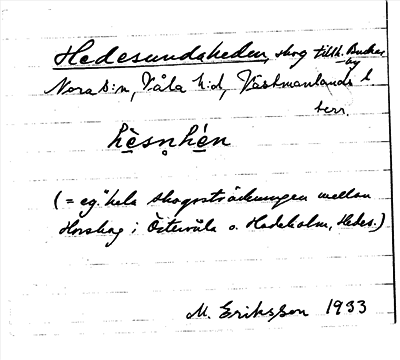 Hedesundaheden, skog tillh. Buckarby
Nora s:n, Våla h:d, Västmanlands l.
terr.
hèsn̥hén
(= eg. "hela skogssträckningen mellan
Horskog i Östervåla o. Hadeholm, Hedes.)
M. Eriksson 1933